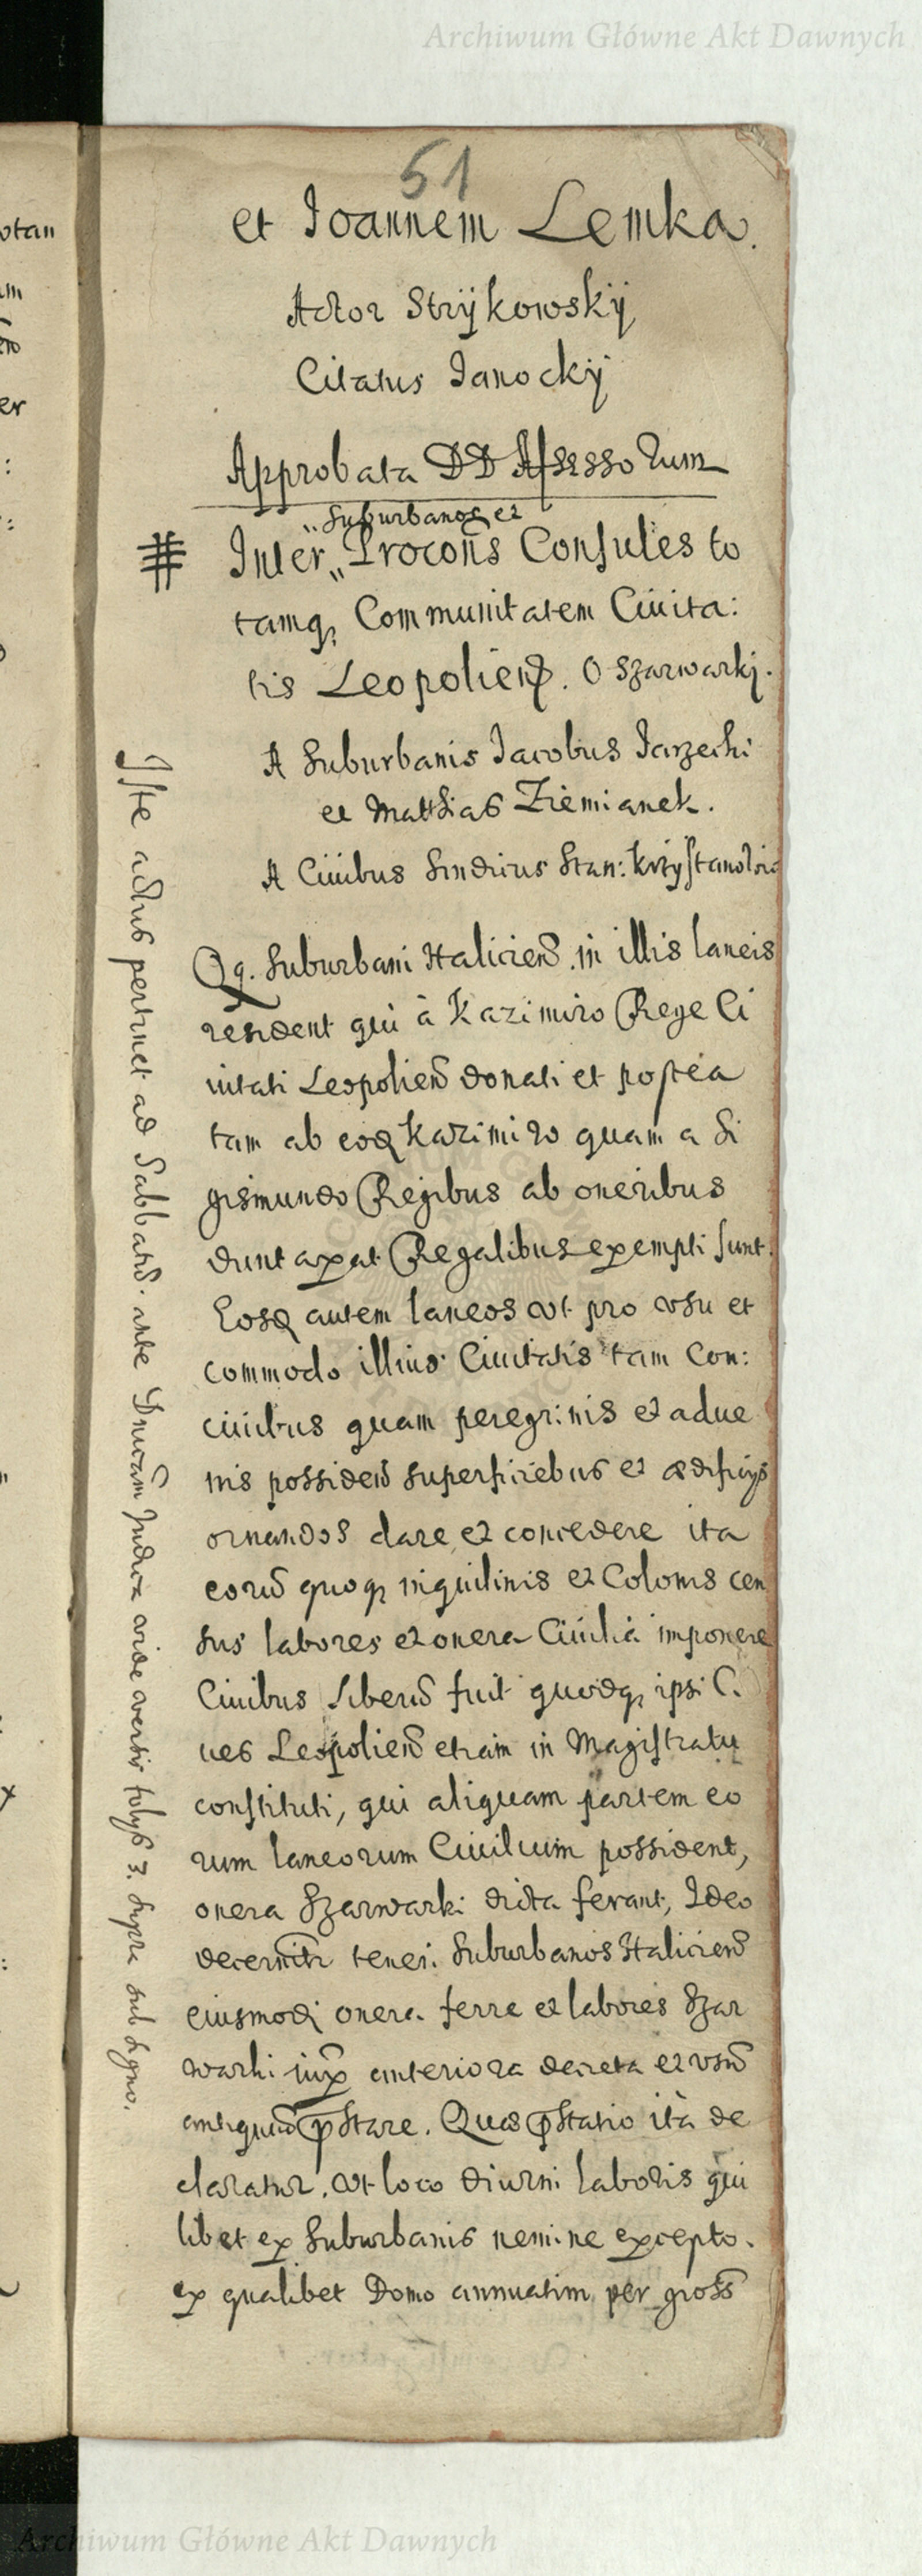 Archiwum Główne Akt Dawnych
51
et Joannem Lemka.
Actor Strÿkowskÿ
Citatus Janockÿ
Approbata DD Assessorum
Suburbanos et
# Inter Procons Consules to
tamq, Communitatem Ciuita:
tis Leopolien. O Szarwarki.
A Suburbanis Jacobus Jarzecki
et Matthias Ziemianek.
A Ciuibus Sindicus Stan:
Qq. Suburbani Halicien. in illis laneis
resident qui à Kazimiro Rege Ci
uitati Leopolien donati et postea
tam ab eod Kazimiro quam a Si
gismundo Regibus ab oneribus
duntaxat Regalibus exempti sunt.
Eosd autem laneos vt pro vsu et
commodo illius Ciuitatis tam Con:
ciuibus quam peregrinis et adue
nis possiden superficiebus et ædificijs
ornandos dare et concedere ita
eorū quoq, inquilinis et Colonis cen
sus labores et onera Ciuilia imponere
Ciuibus liberū fuit quodq, ipsi Ci
ues Leopolien etiam in Magistratu
constituti, qui aliquam partem eo
rum laneorum Ciuilium possident,
onera Szarwarki dicta ferant, Ideo
decernitr teneri Suburbanos Halicien
eiusmodi onera ferre et labores Szar
warki iux anteriora decreta et vsū
antiquū pstare. Quæ pstatio ità de
claratur, vt loco diurni laboris qui
libet ex Suburbanis nemine excepto.
ex qualibet Domo annuatim per gross
Iste actus pertinet ad Sabbatū ante Dnicam Judica vide versis folijs 3. supra sub signo.
Archiwum Główne Akt Dawnych